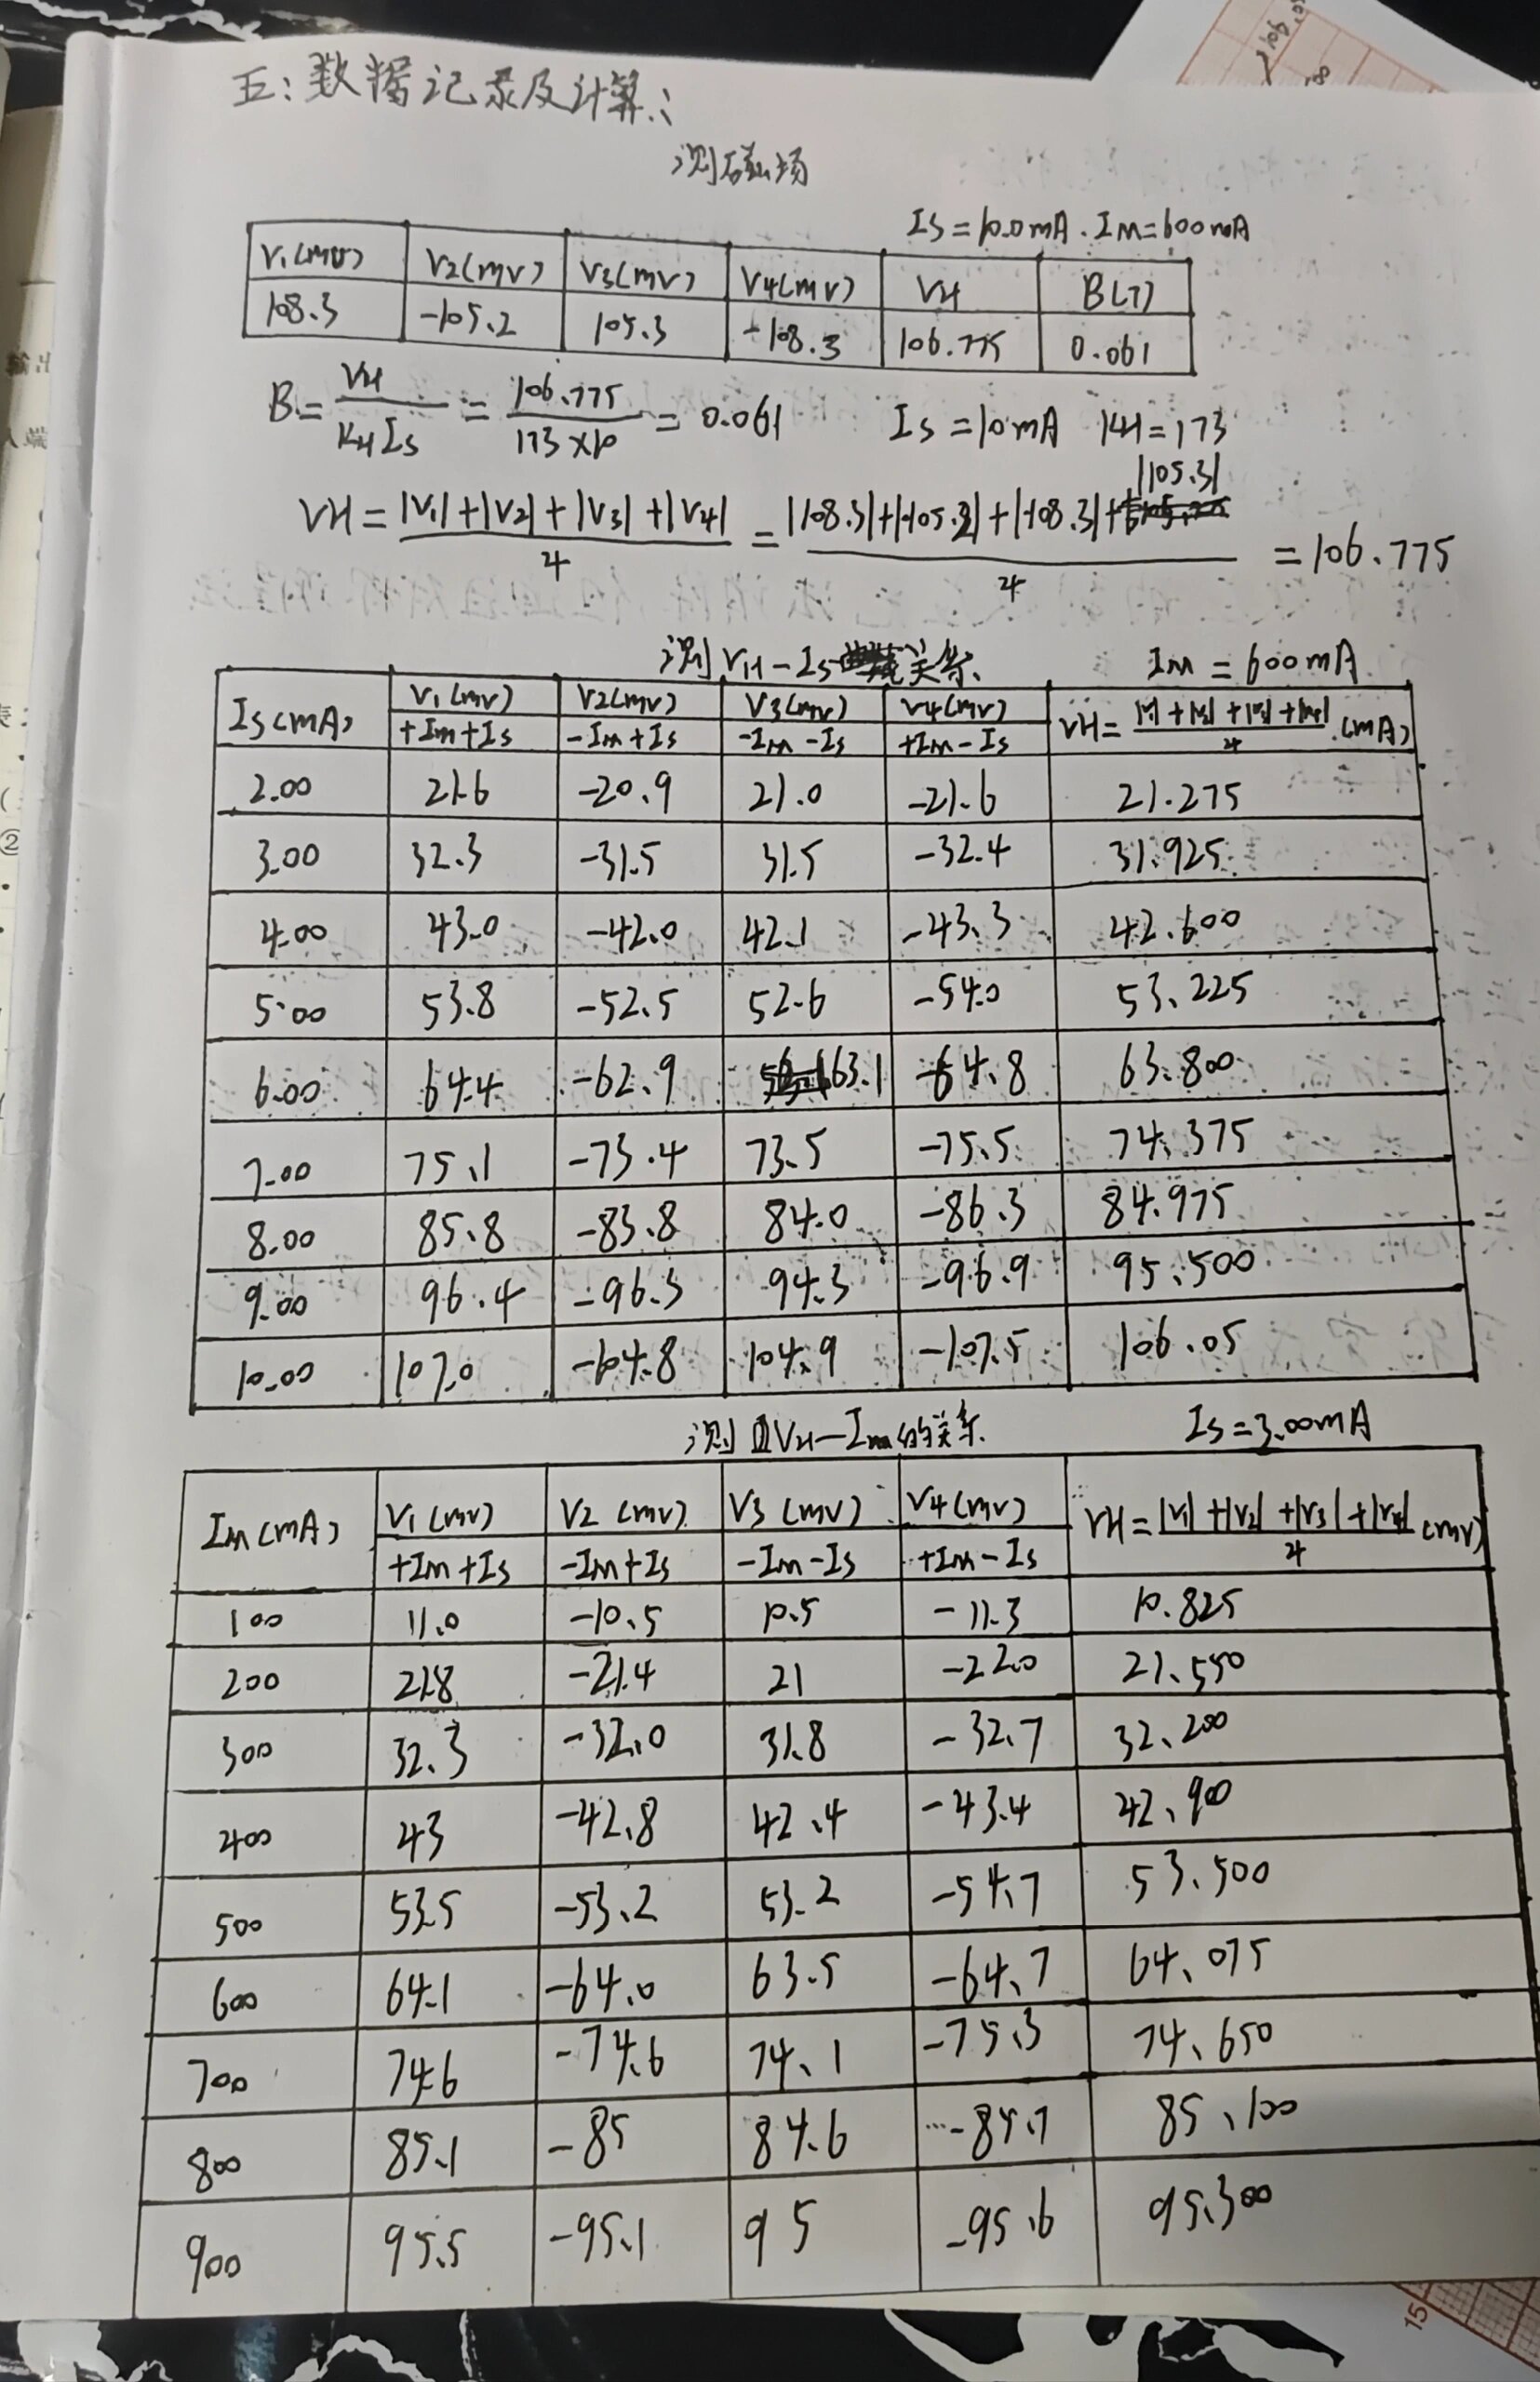 五:数据记录及计算:
测磁场
Is=10.0mA. Im=600mA
V1(mv) V2(mv) V3(mv) V4(mv) VH B(T)
108.3 -105.2 105.3 -108.3 106.775 0.061
B=VH/KHIs=106.775/173×10=0.061 Is=10mA KH=173
VH=|V1|+|V2|+|V3|+|V4|/4=|108.3|+|-105.2|+|-108.3|+|105.3|/4=106.775
测VH-Is关系. Im=600mA
Is(mA) V1(mv) V2(mv) V3(mv) V4(mv) VH=|V1|+|V2|+|V3|+|V4|/4.(mA)
+Im+Is -Im+Is -Im-Is +Im-Is
2.00 21.6 -20.9 21.0 -21.6 21.275
3.00 32.3 -31.5 31.5 -32.4 31.925
4.00 43.0 -42.0 42.1 -43.3 42.600
5.00 53.8 -52.5 52.6 -54.0 53.225
6.00 64.4 -62.9 63.1 -64.8 63.800
7.00 75.1 -73.4 73.5 -75.5 74.375
8.00 85.8 -83.8 84.0 -86.3 84.975
9.00 96.4 -96.3 94.3 -96.9 95.500
10.00 107.0 -104.8 104.9 -107.5 106.05
测VH-Im的关系. Is=3.00mA
Im(mA) V1(mv) V2(mv) V3(mv) V4(mv) VH=|V1|+|V2|+|V3|+|V4|/4(mv)
+Im+Is -Im+Is -Im-Is +Im-Is
100 11.0 -10.5 10.5 -11.3 10.825
200 21.8 -21.4 21 -22.0 21.550
300 32.3 -32.0 31.8 -32.7 32.200
400 43 -42.8 42.4 -43.4 42.900
500 53.5 -53.2 53.2 -54.7 53.500
600 64.1 -64.0 63.5 -64.7 64.075
700 74.6 -74.6 74.1 -75.3 74.650
800 85.1 -85 84.6 -85.7 85.100
900 95.5 -95.1 95 -95.6 95.300
15